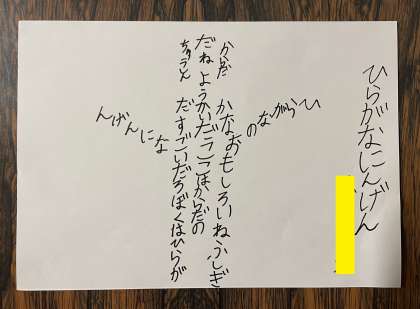 ひらがなにんげん
ひらがなの
からだ
かなおもしろいねふしぎ
だねようかいだろここはからだの
ちゅうしん
だすごいだろぼくはひらが
なにんげん